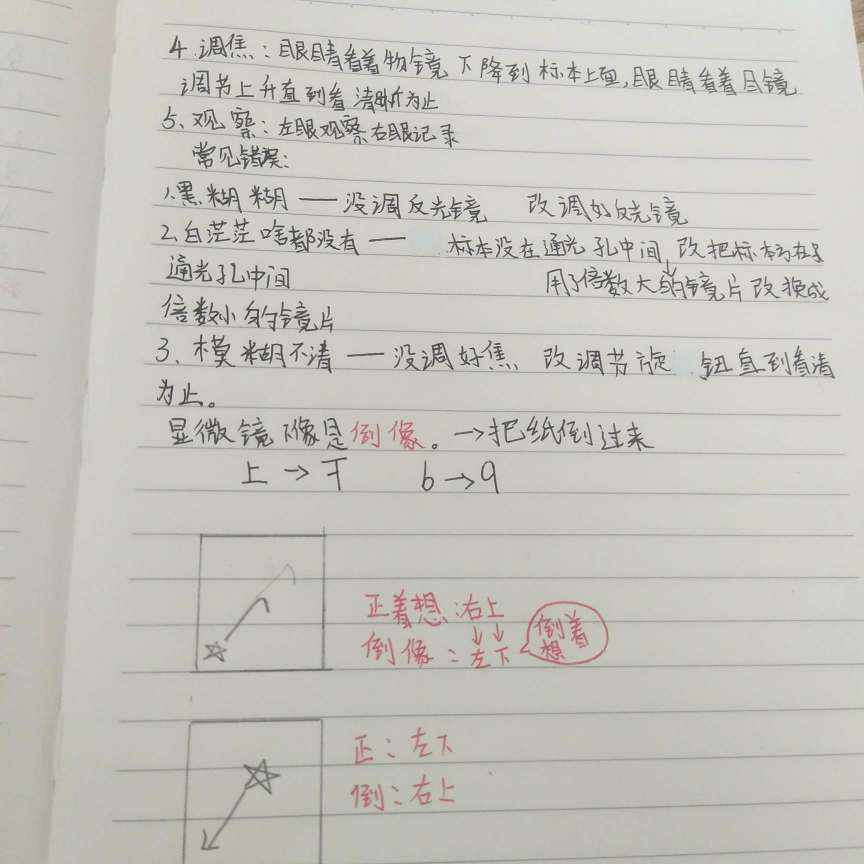 4.调焦：眼睛看着物镜下降到标本上面，眼睛看着目镜
调节上升直到看清晰为止
5、观察：左眼观察右眼记录
常见错误：
1.黑糊糊——没调反光镜 改调好反光镜
2、白茫茫啥都没有——标本没在通光孔中间，改把标本放在
通光孔中间 用了倍数大的镜片改换成
倍数小的镜片
3、模糊不清——没调好焦 改调节旋钮直到看清
为止。
显微镜下像是倒像。→把纸倒过来
上→下 b→q
正着想：右上
倒像：左下
倒着
想
正：左下
倒：右上